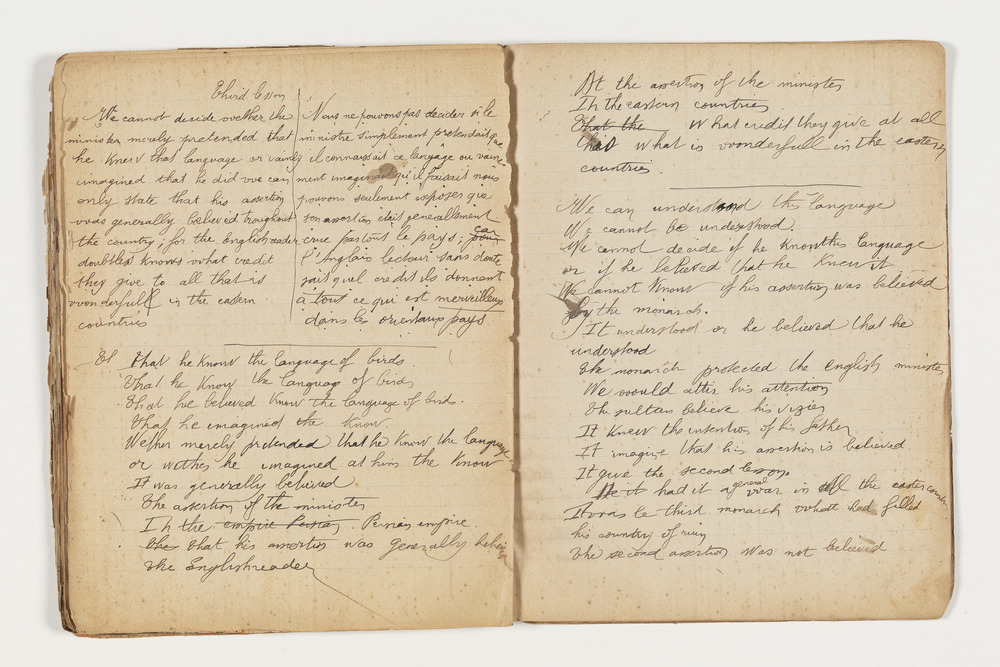 Third lesson
We cannot decide vvether the
minister merely pretended that
he knew that language or vainly
immagined that he did vve can
only state that his assertion
vvas generally believed troughout
the country; for the English reader
doubtless knows vvhat credit
they give to all that is
vvonderfull in the eastern
countries
Nous ne pouvons pas decider si le
ministre simplement pretendait que
il connaissait ce langage ou vaine-
ment imaginait qu'il faisait nous
pouvons seulement exposer que
son assertion etait generallement
crue partout le pays; car
l'Anglais lecteur sans doute
sait quel credit ils donnent
à tout ce qui est merveilleux
dans les orientaux pays
That he know the language of birds
That he know the language of birds
That he believed know the language of birds.
That he imagined the know.
Wether merely pretended that he know the language
or wether he imagined at him the know
It was generally believed
The assertion of the minister
In the empire Persian. Persian empire.
The that his assertion was generally believed
The English reader
At the assertion of the minister
In the eastern countries
That the What credit they give at all
that what is vvonderfull in the eastern
countries.
We can understand this language
We cannot be understood.
We cannot decide if he know this language
or if he believed that he knew it
We cannot know if his assertion was believed
by the monarch.
It understood or he believed that he
understood
The monarch protected the english minister
We would atter his attention
The sultan believe his vizier
It knew the intention of his father
It imagine that his assertion is believed
It give the second lesson.
had it a general war in all the easter countries
It was the third monarch vvhatt had filled
his country of ruin
The second assertion was not believed